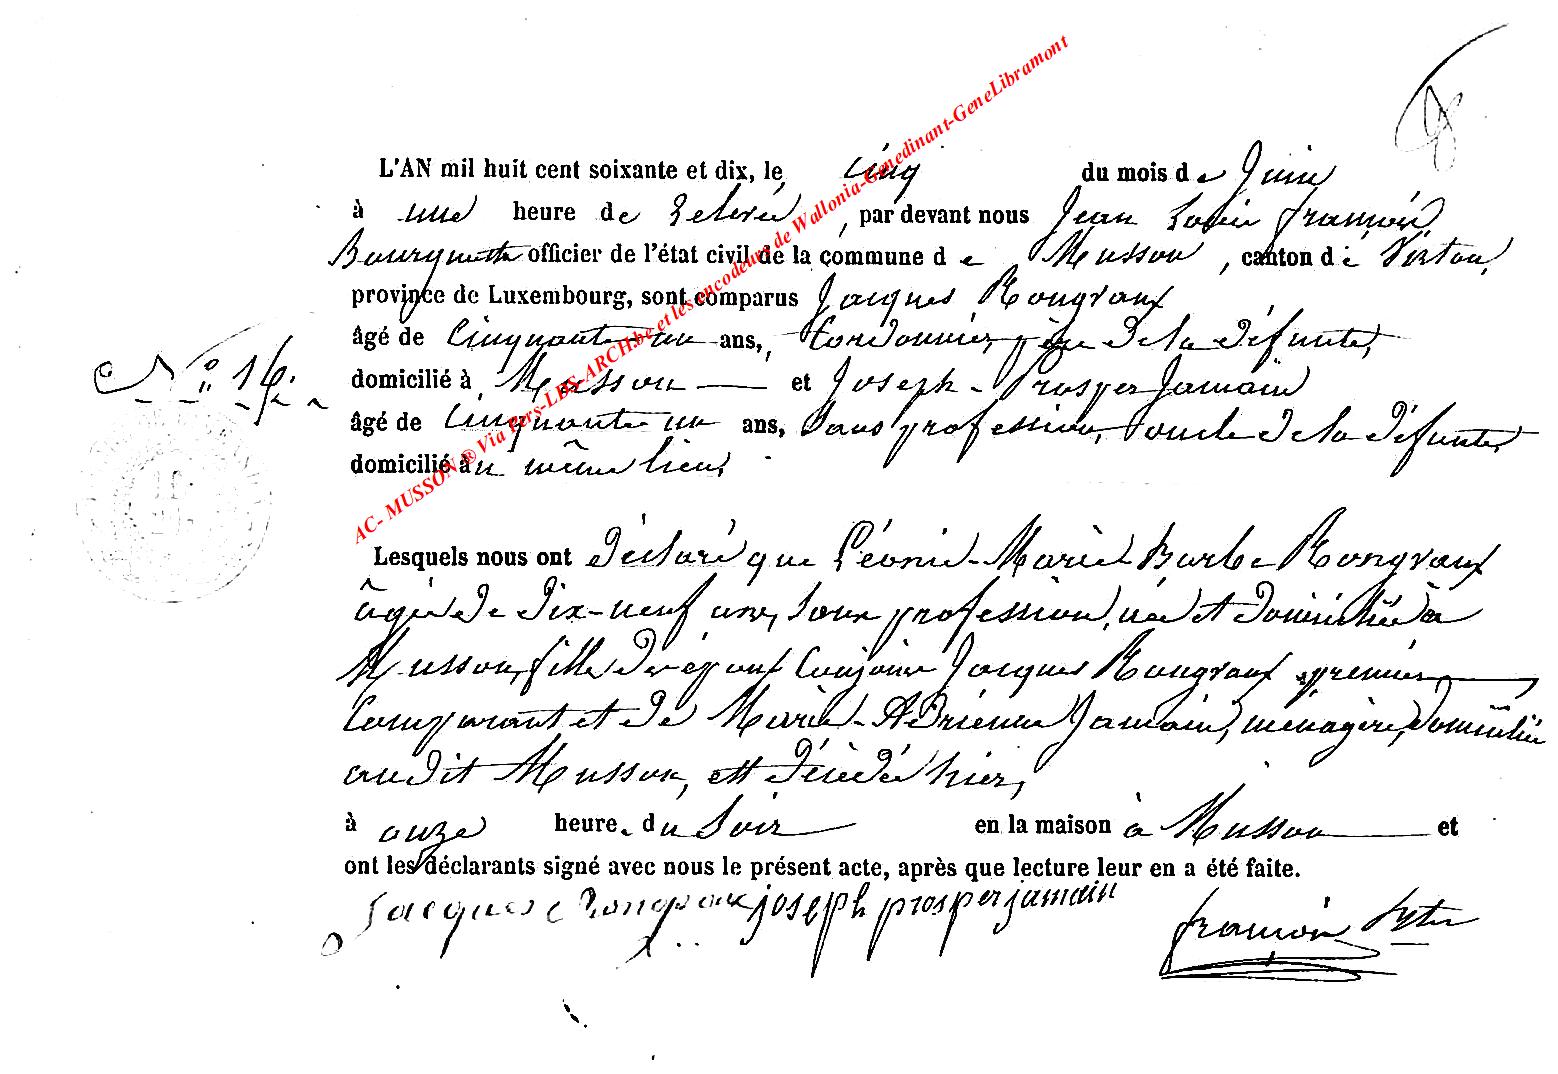 L'AN mil huit cent soixante et dix, le cinq du mois de Juin
à une heure de relevée, par devant nous Jean Louis François
Bourguet officier de l'état civil de la commune de Musson, canton de Virton,
province de Luxembourg, sont comparus Jacques Rongvaux
âgé de cinquante-un ans, Cordonnier, père de la défunte,
N° 16.
domicilié à Musson et Joseph-Prosper Jamain
âgé de cinquante un ans, sans profession, oncle de la défunte,
domicilié au même lieu,
Lesquels nous ont déclaré que Léonie-Marie Barbe Rongvaux
âgée de dix-neuf ans, sans profession, née et domiciliée à
Musson, fille des époux conjoins Jacques Rongvaux premier
comparant et de Marie-Adrienne Jamain, ménagère, domiciliés
audit Musson, est décédée hier,
à onze heures du soir en la maison à Musson et
ont les déclarants signé avec nous le présent acte, après que lecture leur en a été faite.
jacques Rongvaux joseph prosper jamain
françois
AC- MUSSON ® Via Pers-LDS-ARCH.be et les encodeurs de Wallonia-Genedinant-GeneLibramont